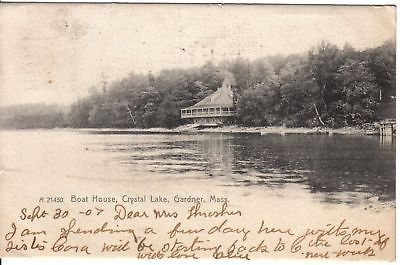 A 21430 Boat House, Crystal Lake, Gardner, Mass.
Sept 30 - 07 Dear Mrs Thrasher
I am spending a few days here with my
sis Cora will be starting back to C the last of
next week.
with love Alice